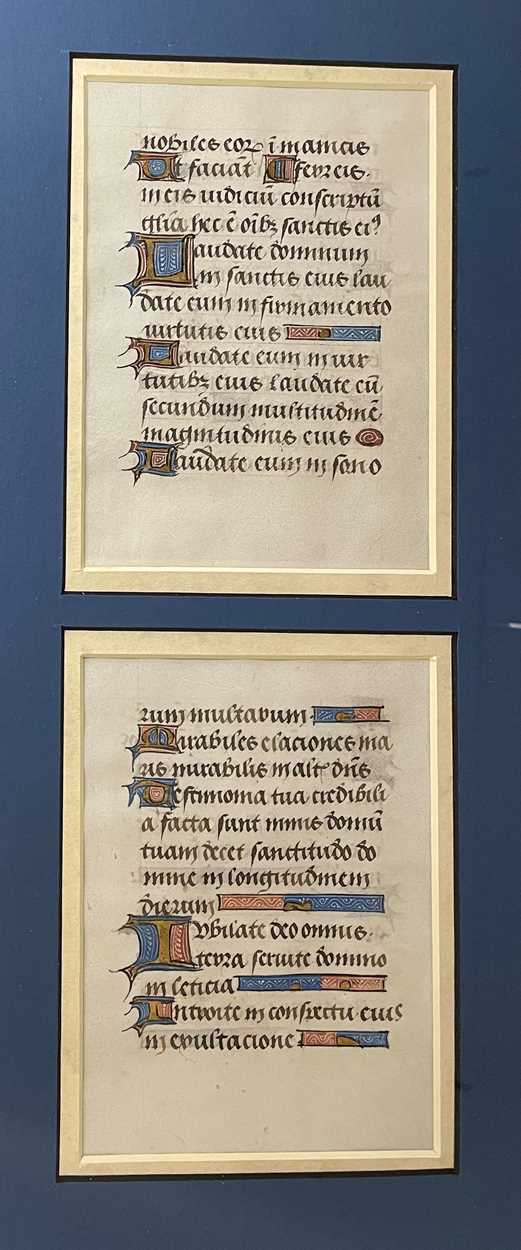 nobiles eoꝝ ī manicis
Ut faciāt ī ferreis.
in eis iudiciū conscriptū
gl̄ia hec ē oībꝫ sanctis eiꝰ
Laudate dominum
in sanctis eius lau
date eum in firmamento
uirtutis eius
Laudate eum in uir
tutibꝫ eius laudate eū
secundum multitudinē
magnitudinis eius
Laudate eum in sono
rum multarum.
Mirabiles elaciones ma
ris mirabilis in alt᷒ dn̄s
Testimonia tua credibili
a facta sunt nimis domū
tuam decet sanctitudo do
mine in longitudinem
dierum
Iubilate deo omnis.
terra seruite domino
in leticia
Introite in conspectu eius
in exultacione